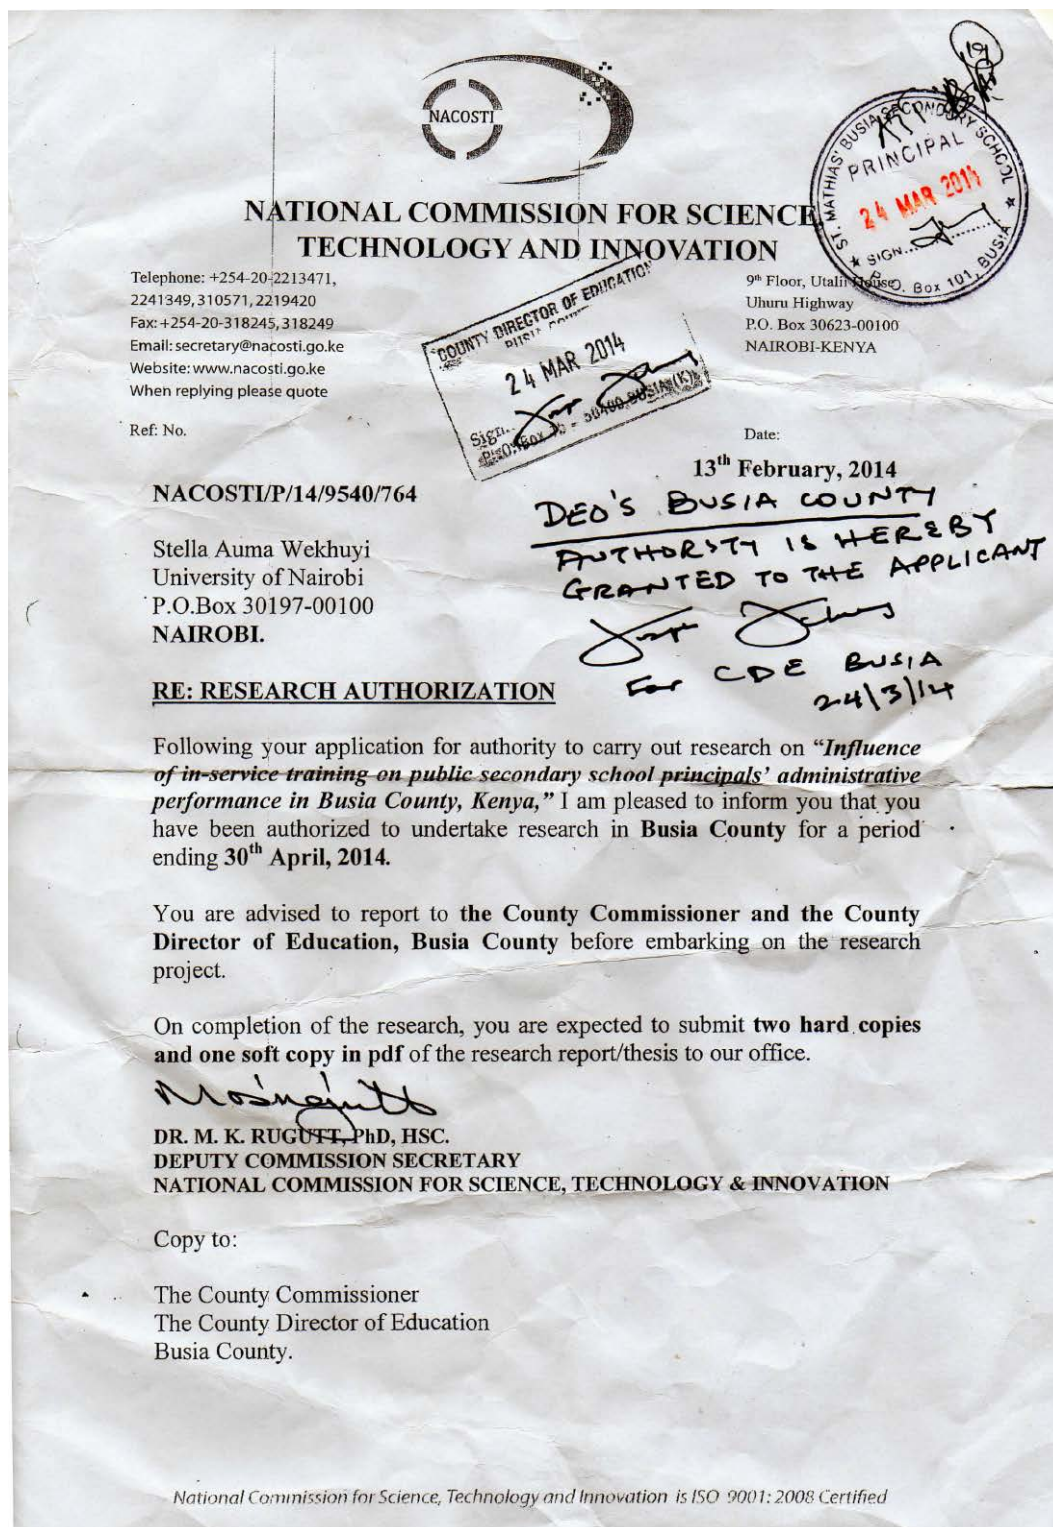 NACOSTI
ST. MATHIAS' BUSIA SECONDARY SCHOOL
PRINCIPAL
24 MAR 2014
SIGN.
P.O. Box 101, BUSIA
NATIONAL COMMISSION FOR SCIENCE,
TECHNOLOGY AND INNOVATION
Telephone: +254-20-2213471,
2241349, 310571, 2219420
Fax: +254-20-318245, 318249
Email: secretary@nacosti.go.ke
Website: www.nacosti.go.ke
When replying please quote
9th Floor, Utalii House
Uhuru Highway
P.O. Box 30623-00100
NAIROBI-KENYA
COUNTY DIRECTOR OF EDUCATION
24 MAR 2014
Sign..
50400, BUSIA (K)
Ref: No.
Date:
13th February, 2014
NACOSTI/P/14/9540/764
DEO'S BUSIA COUNTY
AUTHORITY IS HEREBY
GRANTED TO THE APPLICANT
For CDE BUSIA
24/3/14
Stella Auma Wekhuyi
University of Nairobi
P.O.Box 30197-00100
NAIROBI.
RE: RESEARCH AUTHORIZATION
Following your application for authority to carry out research on “Influence
of in-service training on public secondary school principals’ administrative
performance in Busia County, Kenya,” I am pleased to inform you that you
have been authorized to undertake research in Busia County for a period
ending 30th April, 2014.
You are advised to report to the County Commissioner and the County
Director of Education, Busia County before embarking on the research
project.
On completion of the research, you are expected to submit two hard copies
and one soft copy in pdf of the research report/thesis to our office.
DR. M. K. RUGUTT, PhD, HSC.
DEPUTY COMMISSION SECRETARY
NATIONAL COMMISSION FOR SCIENCE, TECHNOLOGY & INNOVATION
Copy to:
The County Commissioner
The County Director of Education
Busia County.
National Commission for Science, Technology and Innovation is ISO 9001: 2008 Certified